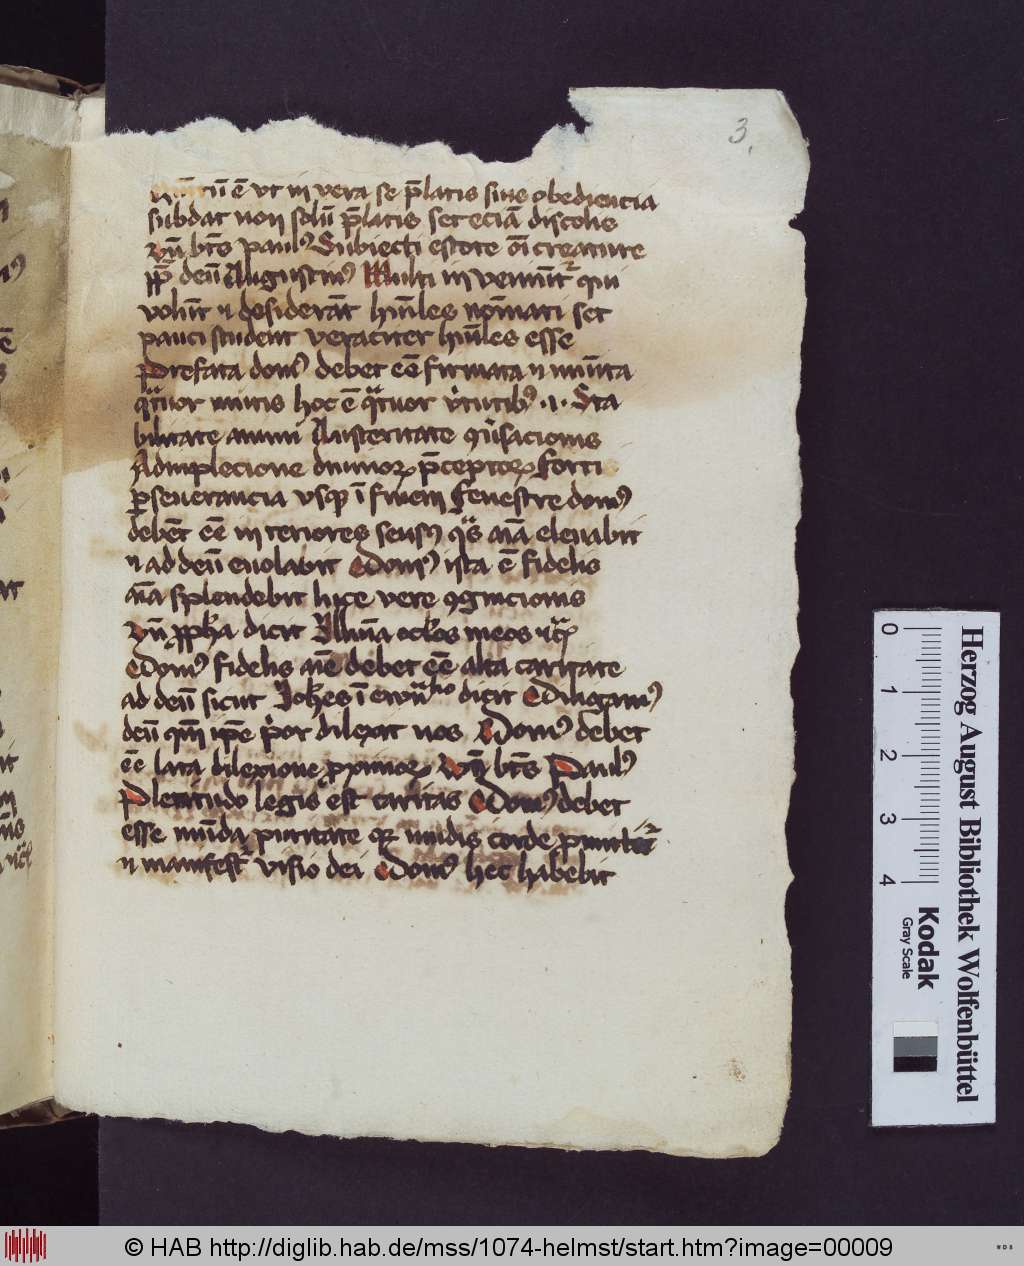 3
ē vt in vera se p̄latis siue obediencia
subdat non solū p̄latis set eciā discolis
vn̄ bt̄s paulꝰ Subiecti estote oī creature
pp̄ deū Augustinꝰ Multi inveniūtr qui
volūt ⁊ desiderāt hūiles noīmati set
pauci student veraciter hūiles esse
Prefata domꝰ debet eē firmata ⁊ muīta
qͣtuor muris hoc ē qͣtuor v̓tutibꝰ ·1· Sta
bilitate animi Austeritate ꝯu̓sacionis
Adimplecione diuinoꝝ p̄ceptoꝝ Forti
ꝑseuerancia vsqꝫ ī finem Fenestre domꝰ
debēt eē interiores sensꝰ aīa eleuabit
⁊ ad deū euolabit Domꝰ ista ē fidelis
aīa splendebit luce vere ꝯgnicionis
vn̄ ꝓpħa dicit Illuīa oclōs meos ⁊cͣ
Domꝰ fidelis aīe debet eē alta caritate
ad deū sicut Joħes ī dicit Diligamꝰ
deū qm̄ ip̄e p̓or dilexit nos Domꝰ debet
eē lata dilexione ꝓximoꝝ Vn̄ bt̄s Paulꝰ
Plenitudo legis est caritas Domꝰ debet
esse mūda puritate qꝛ mūdis corde
⁊ manifestr̄ visio dei Domꝰ hec habebit
0
1
2
3
4
Herzog August Bibliothek Wolfenbüttel
Kodak
Gray Scale
© HAB http://diglib.hab.de/mss/1074-helmst/start.htm?image=00009